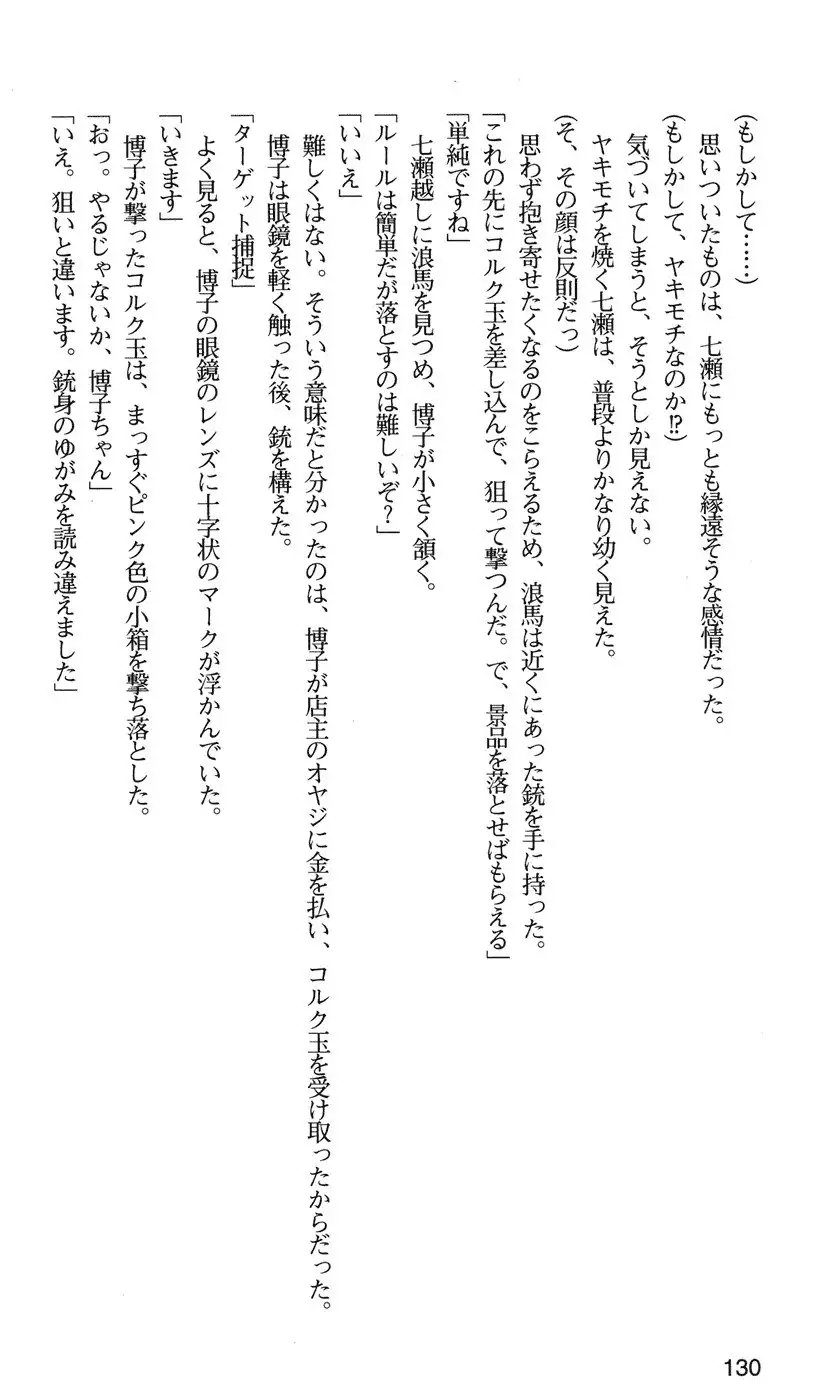 (もしかして……)
思いついたものは、七瀬にもっとも縁遠そうな感情だった。
(もしかして、ヤキモチなのか!?)
気づいてしまうと、そうとしか見えない。
ヤキモチを焼く七瀬は、普段よりかなり幼く見えた。
(そ、その顔は反則だっ)
思わず抱き寄せたくなるのをこらえるため、浪馬は近くにあった銃を手に持った。
「これの先にコルク玉を差し込んで、狙って撃つんだ。で、景品を落とせばもらえる」
「単純ですね」
七瀬越しに浪馬を見つめ、博子が小さく頷く。
「ルールは簡単だが落とすのは難しいぞ?」
「いいえ」
難しくはない。そういう意味だと分かったのは、博子が店主のオヤジに金を払い、コルク玉を受け取ったからだった。
博子は眼鏡を軽く触った後、銃を構えた。
「ターゲット捕捉」
よく見ると、博子の眼鏡のレンズに十字状のマークが浮かんでいた。
「いきます」
博子が撃ったコルク玉は、まっすぐピンク色の小箱を撃ち落とした。
「おっ。やるじゃないか、博子ちゃん」
「いえ。狙いと違います。銃身のゆがみを読み違えました」
130